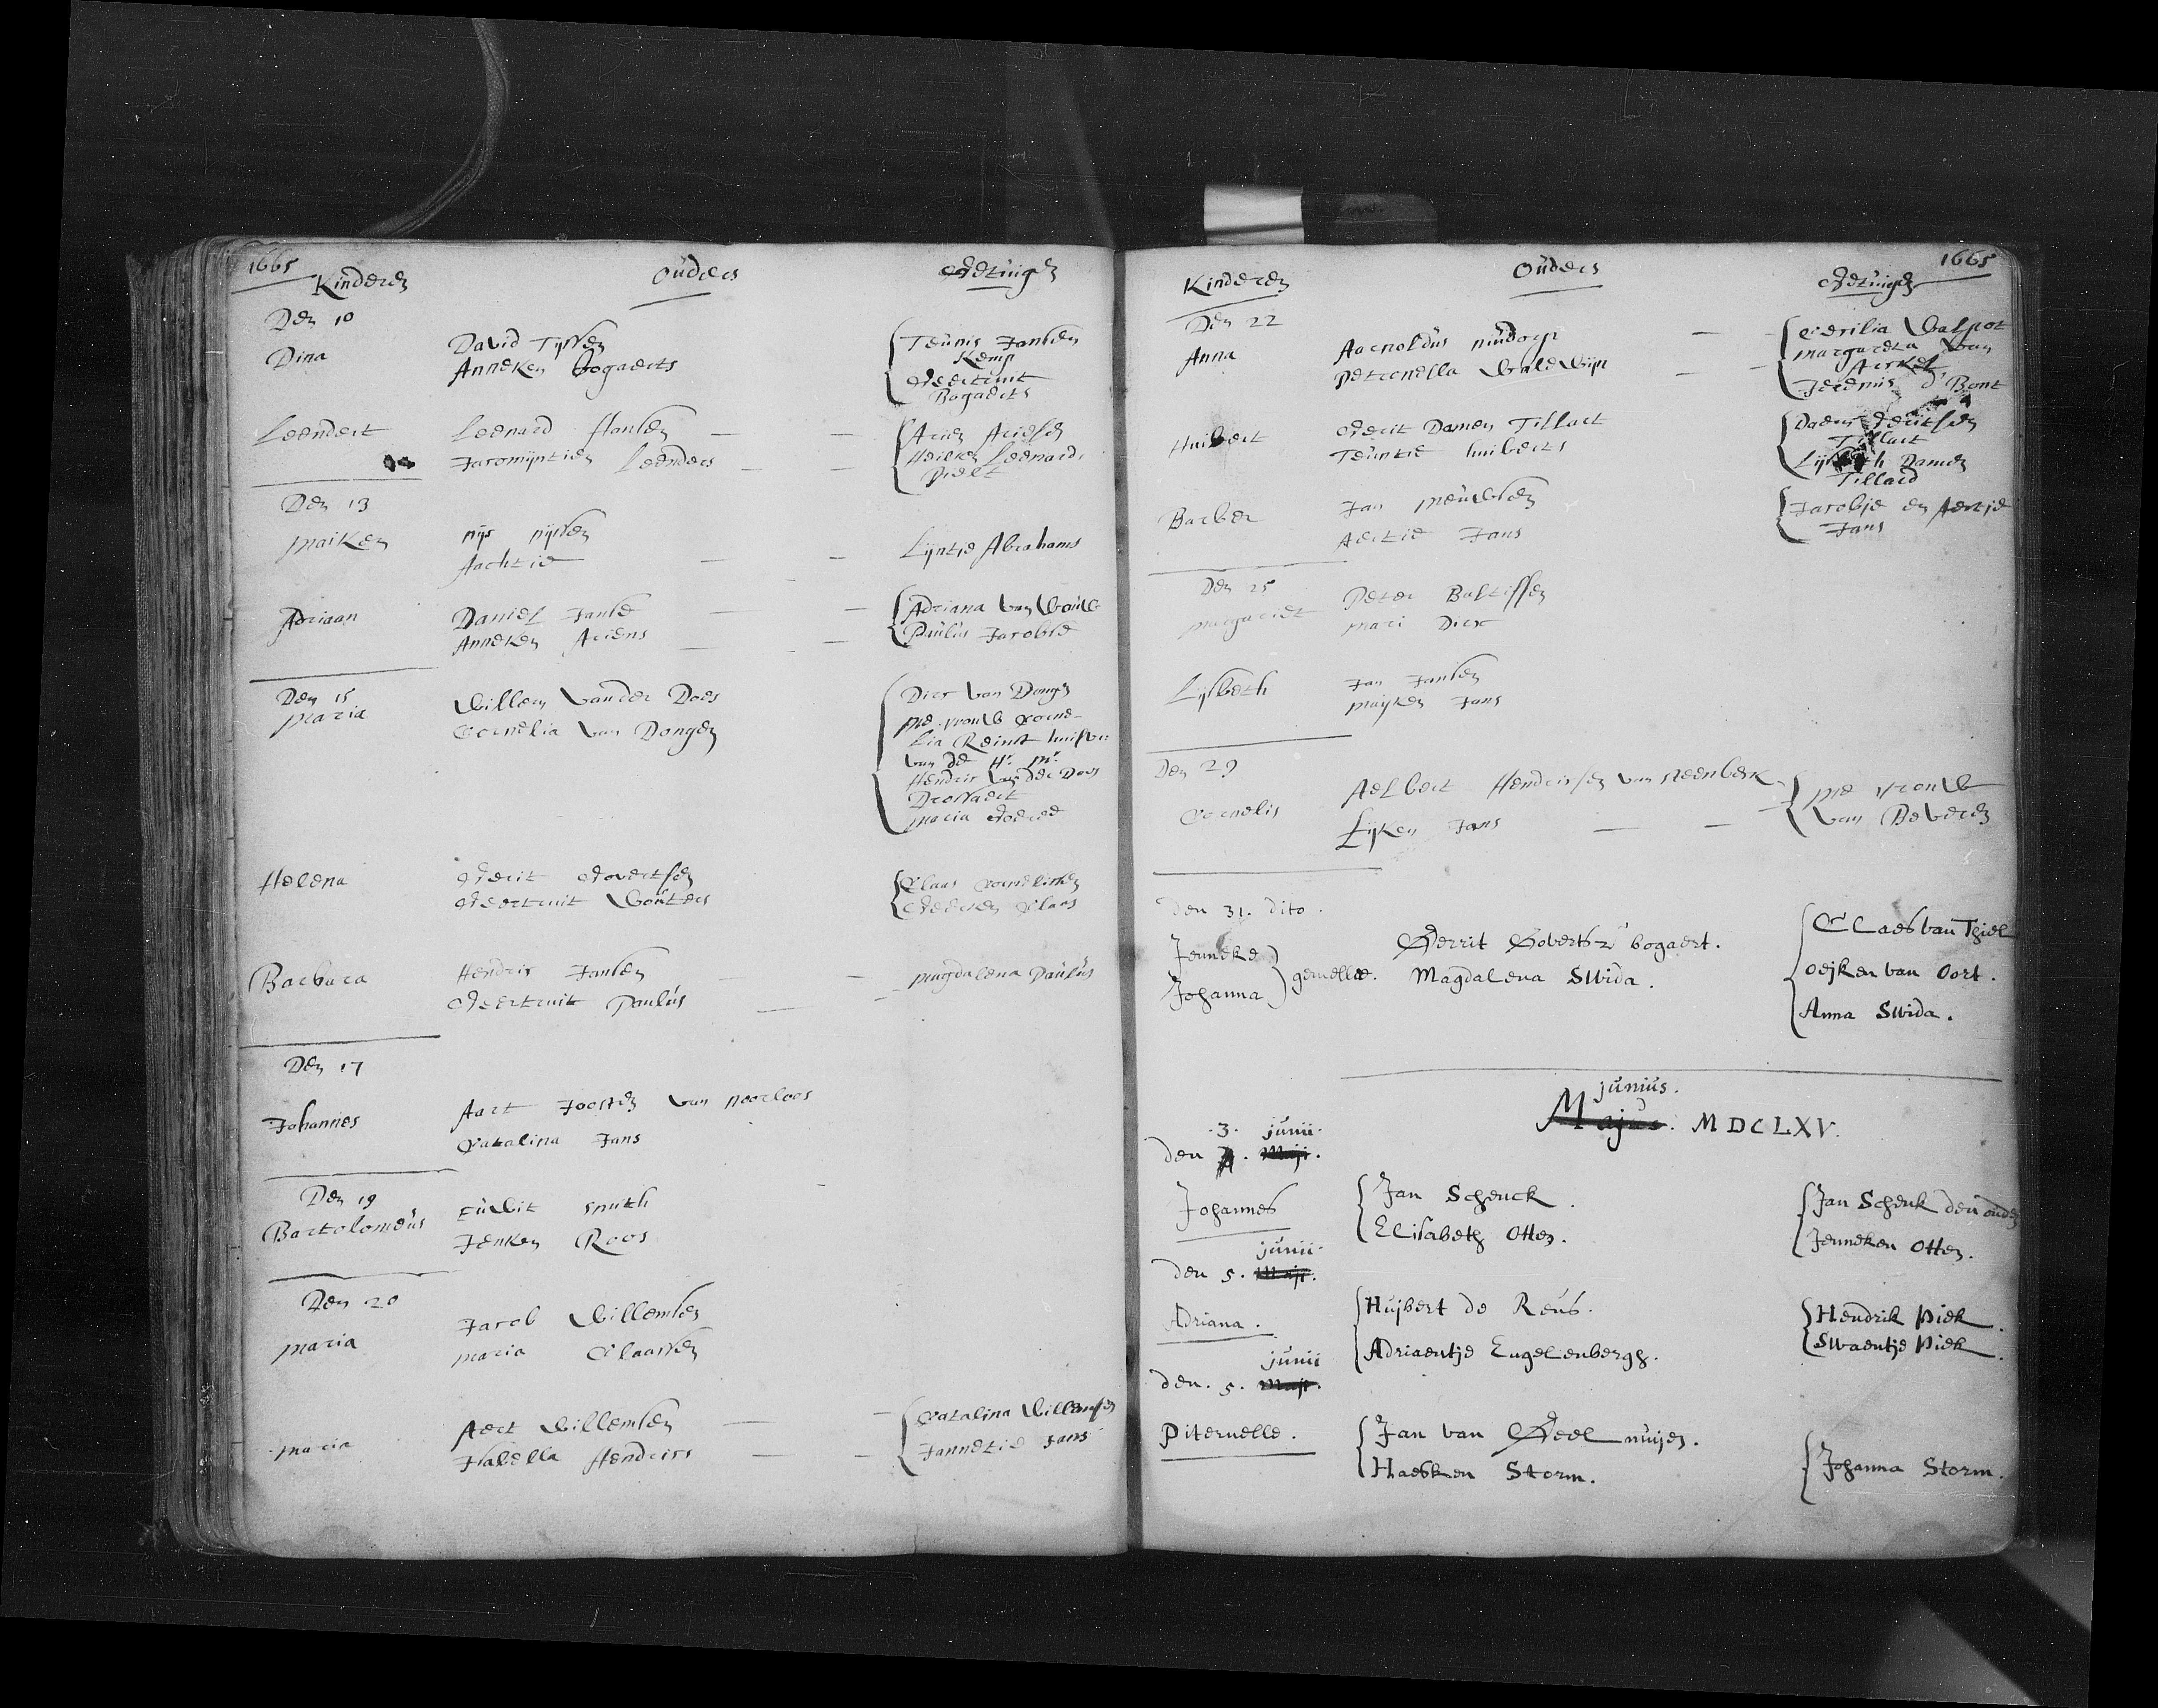 1665
Kinderen Ouders Getuigen
Den 10
Dina
David Tijssen
Anneken Bogaerts
Teunis Jansen
Kemp
Geertruit
Bogaerts
Leendert
Leenard Hansen
Jacomijntien Leenders
Arien Ariesen
Heilken Leenards
Den 13
Maiken
Nijs Nijssen
Aachtie
Lijntje Abrahams
Adriaan
Daniel Janse
Anneken Ariens
Adriana van Wouw
Paulus Jacobse
Den 15
Maria
Willem vander Does
Cornelia van Dongen
Dirc van Dongen
Me vrouw Corne-
lia Reinst huisvr
van de Hr. Mr.
Hendric vander Does
Drossaert
Maria Goeree
Helena
Gerit Govertsen
Geertruit Wouters
Claas Cornelissen
Geerten Claas
Barbara
Hendric Jansen
Geertruit Paulus
Magdalena Paulus
Den 17
Johannes
Aart Joosten van Noorloos
Catalina Jans
Den 19
Bartolomeus
Euwit Smith
Jenken Roos
Den 20
Maria
Jacob Willemsen
Maria Claassen
Maria
Aert Willemsen
Isabella Hendrics
Catalina Willemsen
Jannetie Jans
1665
Kinderen Ouders Getuigen
Den 22
Anna
Aarnoldus
Petronella Waldwijn
Cecilia Walpot
Margareta van
Aerkel
Jeremis d' Bont
Huibert
Gerit Damen Tillart
Teuntie Huiberts
Daem Geritsen
Tillart
Lijsbeth Damen
Tillard
Barber
Jan Meeuwsen
Aertie Jans
Jacobje en Aertje
Jans
Den 25
Margariet
Peter Baltissen
Mari Dirx
Lijsbeth
Jan Jansen
Maijken Jans
Den 29
Cornelis
Aelbert Hendricsen van Steenberk
Lijken Jans
Me vrouw
van Beveren
den 31. dito.
Jenneke
Johanna
gemellae.
Gerrit Goverts-zn bogaert.
Magdalena Swida.
Claes van Thiel
oeijken van Oort.
Anna Swida.
junius.
Majus. MDCLXV.
.3. junii.
den . Maji.
Johannes
Jan Schenck.
Elisabeth Otten.
Jan Schenk den ouden
Jenneken Otten.
junii.
den 5. Maji.
Adriana.
Huijbert de Reus.
Adriaentje Engelenbergh.
Hendrik Piek.
Swaentje Piek.
junii
den. 5. Maji.
Piternelle.
Jan van Geel nuijen.
Haesken Storm.
Johanna Storm.